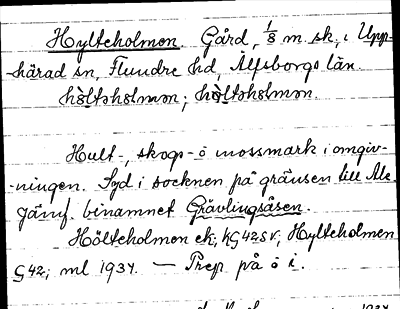 Hylteholmen. Gård, 1/8 m. sk., i Upp-
härad sn, Flundre hd, Älfsborgs län.
hòltəhɵlmən; hòltəhɵlmən.
Hult-, skogs- o mossmark i omgiv-
-ningen. Syd i socknen på gränsen till Ale.
Jämf. binamnet Grävlingsåsen.
Hölteholmen ek, hG42sv; Hylteholmen
G42; ml 1934. — Prep på o i.